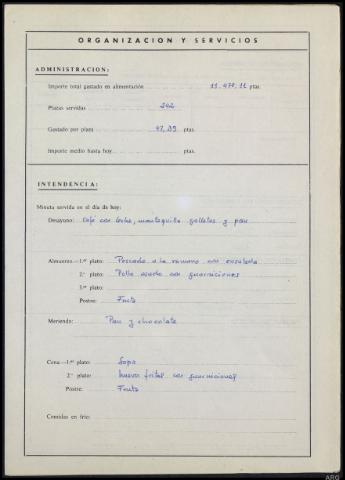 ORGANIZACION Y SERVICIOS
ADMINISTRACION:
Importe total gastado en alimentación 11.470.11 ptas.
Plazas servidas 242
Gastado por plaza 47,39 ptas.
Importe medio hasta hoy ptas.
INTENDENCIA:
Minuta servida en el día de hoy:
Desayuno: Café con leche, mantequilla galletas y pan
Almuerzo.—1.er plato: Pescado a la romana con ensalada
2.º plato: Pollo asado con guarniciones
3.er plato:
Postre: Fruta
Merienda: Pan y chocolate
Cena.—1.er plato: Sopa
2.º plato: huevos fritos con guarniciones
Postre: Fruta
Comidas en frío: